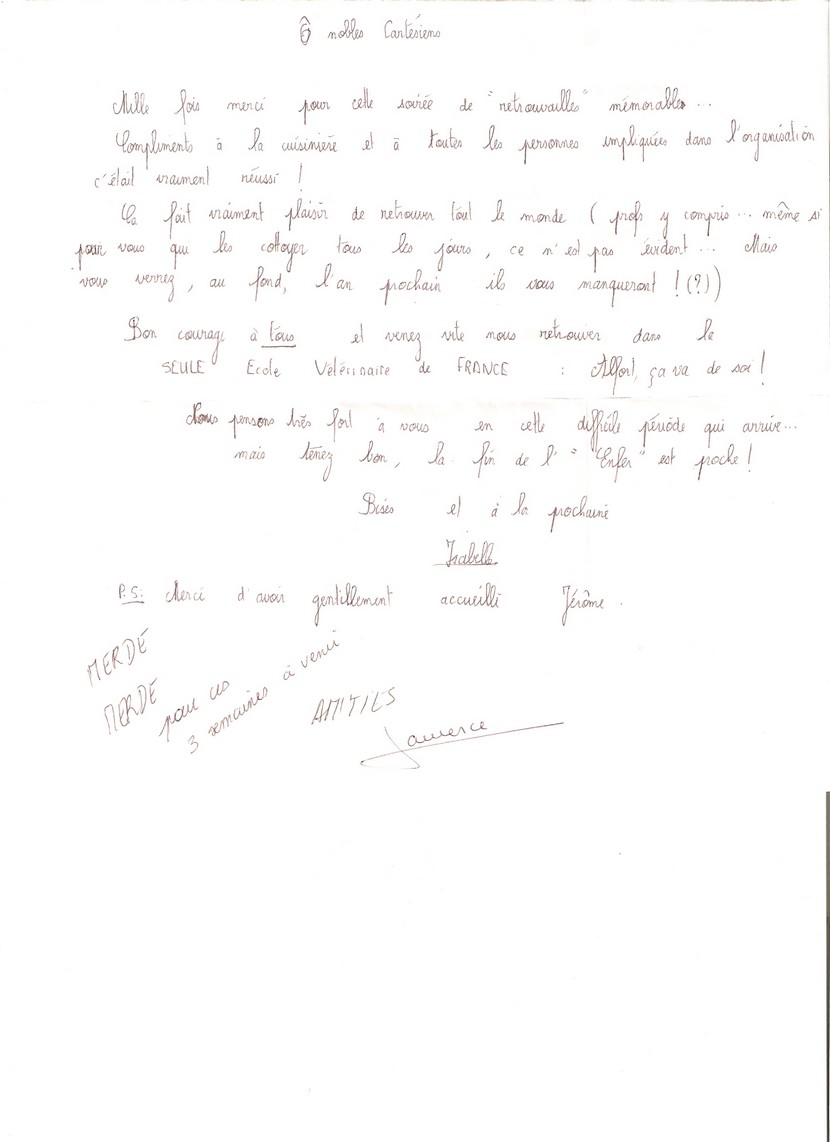 Ô nobles Cartésiens
Mille fois merci pour cette soirée de "retrouvailles" mémorables...
Compliments à la cuisinière et à toutes les personnes impliquées dans l'organisation
c'était vraiment réussi !
Ça fait vraiment plaisir de retrouver tout le monde ( profs y compris... même si
pour vous qui les cottoyer tous les jours, ce n'est pas évident... Mais
vous verrez, au fond, l'an prochain ils vous manqueront ! (?))
Bon courage à tous et venez vite nous retrouver dans la
SEULE Ecole Vétérinaire de FRANCE : Alfort, ça va de soi !
Nous pensons très fort à vous en cette difficile période qui arrive...
mais tenez bon, la fin de l' " "Enfer" est proche !
Bises et à la prochaine
Isabelle
P.S: Merci d'avoir gentillement accueilli Jérôme.
MERDE
MERDE pour ces
3 semaines à venir
AMITIES